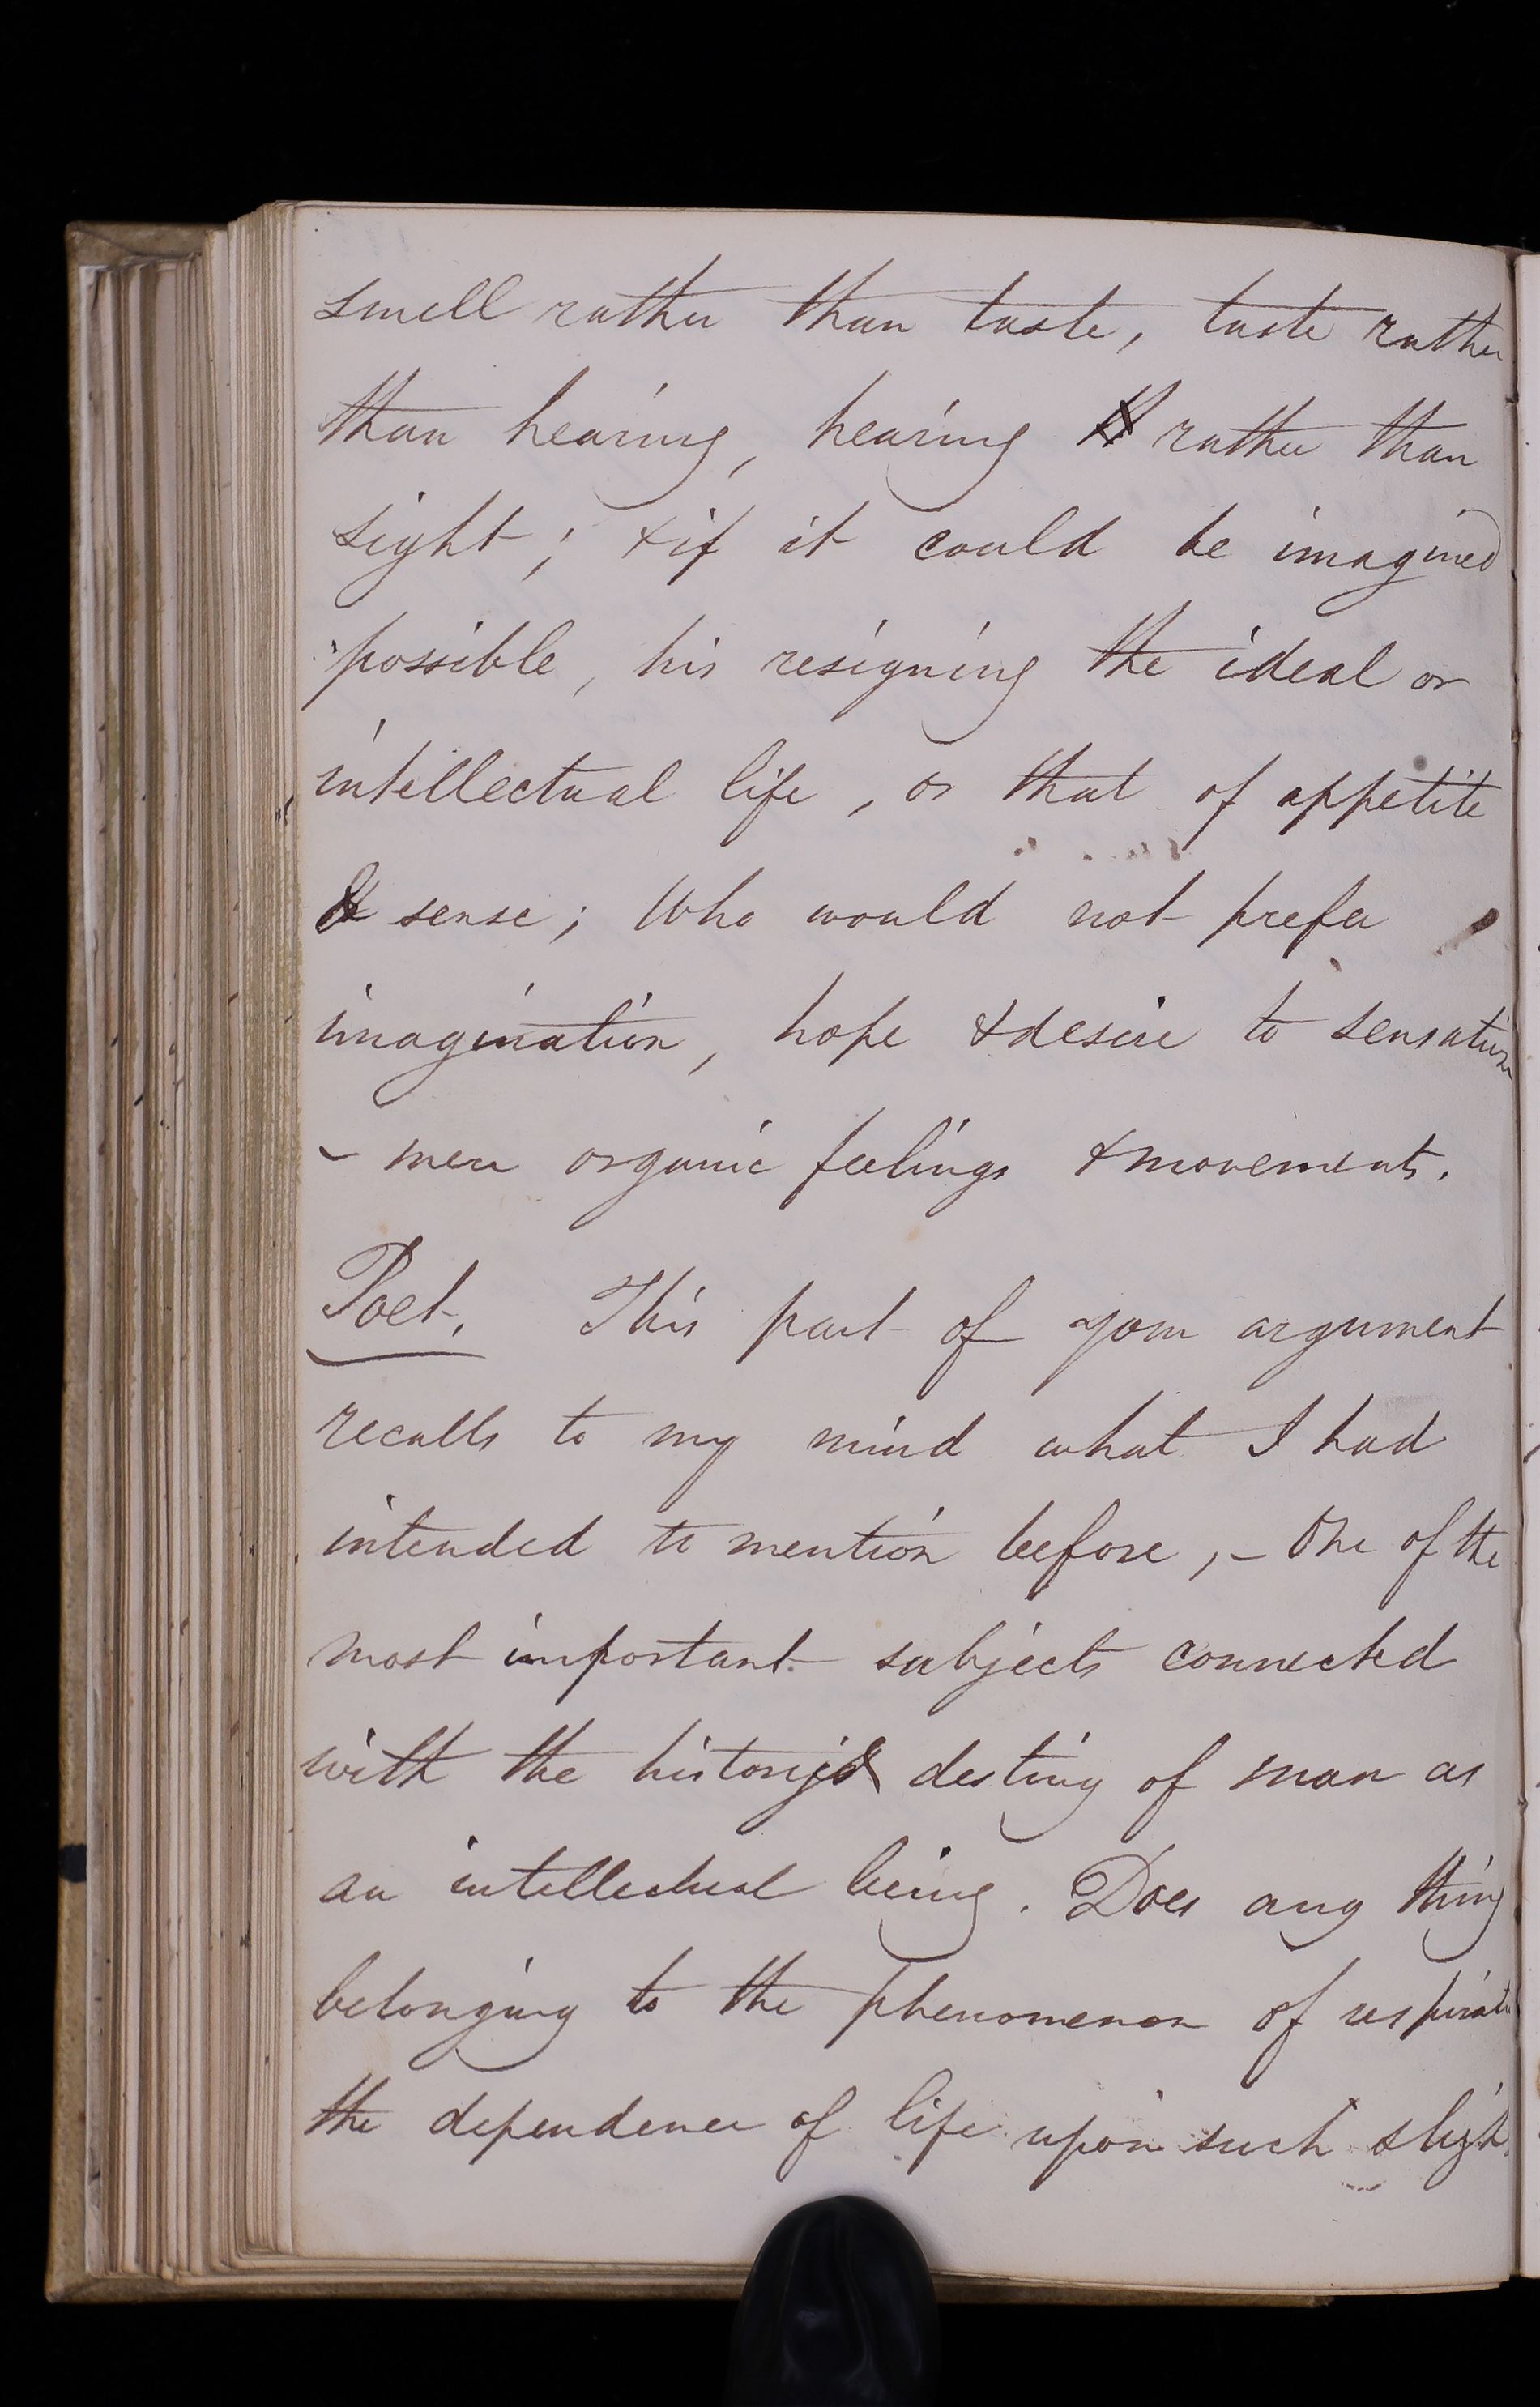 smell rather than taste, taste rather
than hearing, hearing rather than
sight; & if it could be imagined
possible, his resigning the ideal or
intellectual life, or that of appetite
& sense; Who would not prefer
imagination, hope & desire to sensation
- mere organic feelings & movements.
Poet. This part of your argument
recalls to my mind what I had
intended to mention before, - One of the
most important subjects connected
with the history & destiny of man as
an intellectual being. Does any thing
belonging to the phenomenon of
the dependence of life upon such